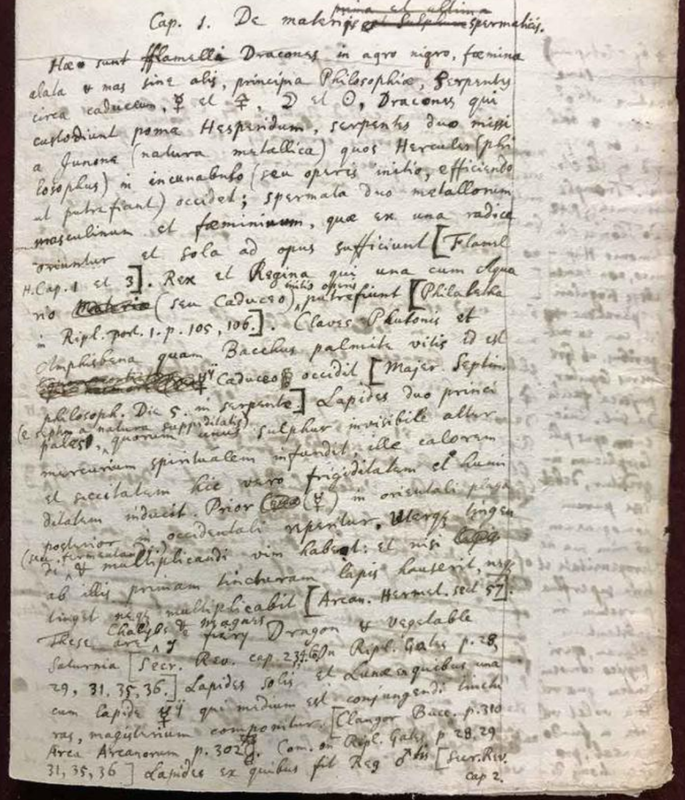 prima et ultima
Cap. 1. De materijs et Sulphure spermaticis.
Hæ sunt fflamelli Dracones in agro nigro, fœmina
alata & mas sine alis, principia Philosophiæ, Serpentes
circa caduceum, ☿ et ♀, ☽ et ☉, Dracones qui
custodiunt poma Hesperidum, serpentes duo missi
a Junone (natura metallica) quos Hercules (phi
losophus) in incunabulo (seu operis initio, efficiendo
ut putrefiant) occidet; spermata duo metallorum
masculinum et fœmininum, quæ ex una radice
oriuntur et sola ad opus sufficiunt [Flamel
H. Cap. 1 et 3]. Rex et Regina qui una cum Aqua
initio operis
rio Materia (seu Caduceo), putrefiunt [Philaletha
in Ripl. port. 1. p. 105, 106.]. Claves Plutonis et
Amphisbena quam Bacchus palmite vitis id est
☿ij Caduceo occidit [Majer Septim
philosoph. Die 5. in serpente] Lapides duo princi
(e septem a natura suppeditatis)
pales, quorum unus sulphur invisibile alter
mercurium spiritualem infundit, ille calorem
et siccitatem hic vero frigiditatem et humi
ditatem inducit. Prior (☿) in orientali plaga
posterior in occidentali reperitur. Uterq tingen
(seu fermentandi)
di & multiplicandi vim habent: et nisi lapis
ab illis primam tincturam lapis hauserit, neq
tinget neq multiplicabit [Arcan. Hermet. sect 57].
Chalybs & Magnes
These are y fiery Dragon & vegetable
Saturnia [Secr. Rev. cap. 2 3 4 6 on Ripl. Gates p. 28,
29, 31, 35, 36.] Lapides solis et Lunæ ex quibus una
cum lapide ☿ij qui medium est conjungendi tinctu
ras, magisterium componitur. [Clangor Bucc. p. 310
Area Arcanorum p. 302 Com. on Ripl. Gates p 28, 29
31, 35, 36] Lapides ex quibus fit Reg ♂tis [Secr. Rev.
cap 2.